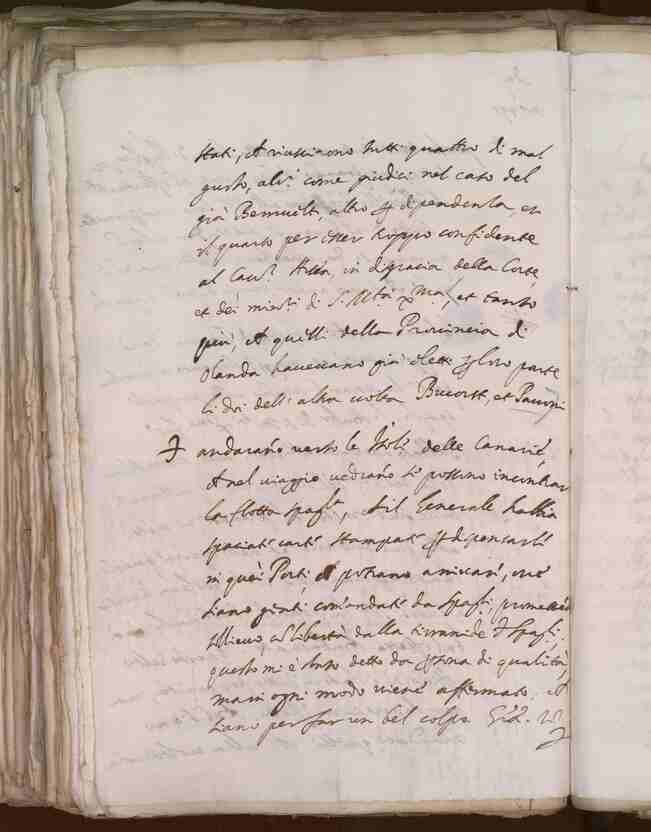 stati, et riuscirono tutti quattro di mal
gusto, alcuni come giudici nel caso del
già Bernvelt, altro per dipendenza, et
il quarto per esser troppo confidente
al Cau.r in disgratia della Corte,
et dei ministri di S. Mtà xma, et tanto
più, che quelli della Provincia di
Olanda havevano già eletti per loro parte
li doi dell'altra volta et
andarano verso le Isole delle Canarie,
et nel viaggio vederano se possono incontrar
la flotta spag.la, et il Generale habbia
spaciate carte stampate per dispensarle
in quei Porti che potrano arrivare, ove
siano genti comandate da spag.li, promettendo
sollievo et libertà dalla tirannide de spag.li;
questo mi è stato detto da persona di qualità,
ma in ogni modo viene affermato, che
siano per far un bel colpo.